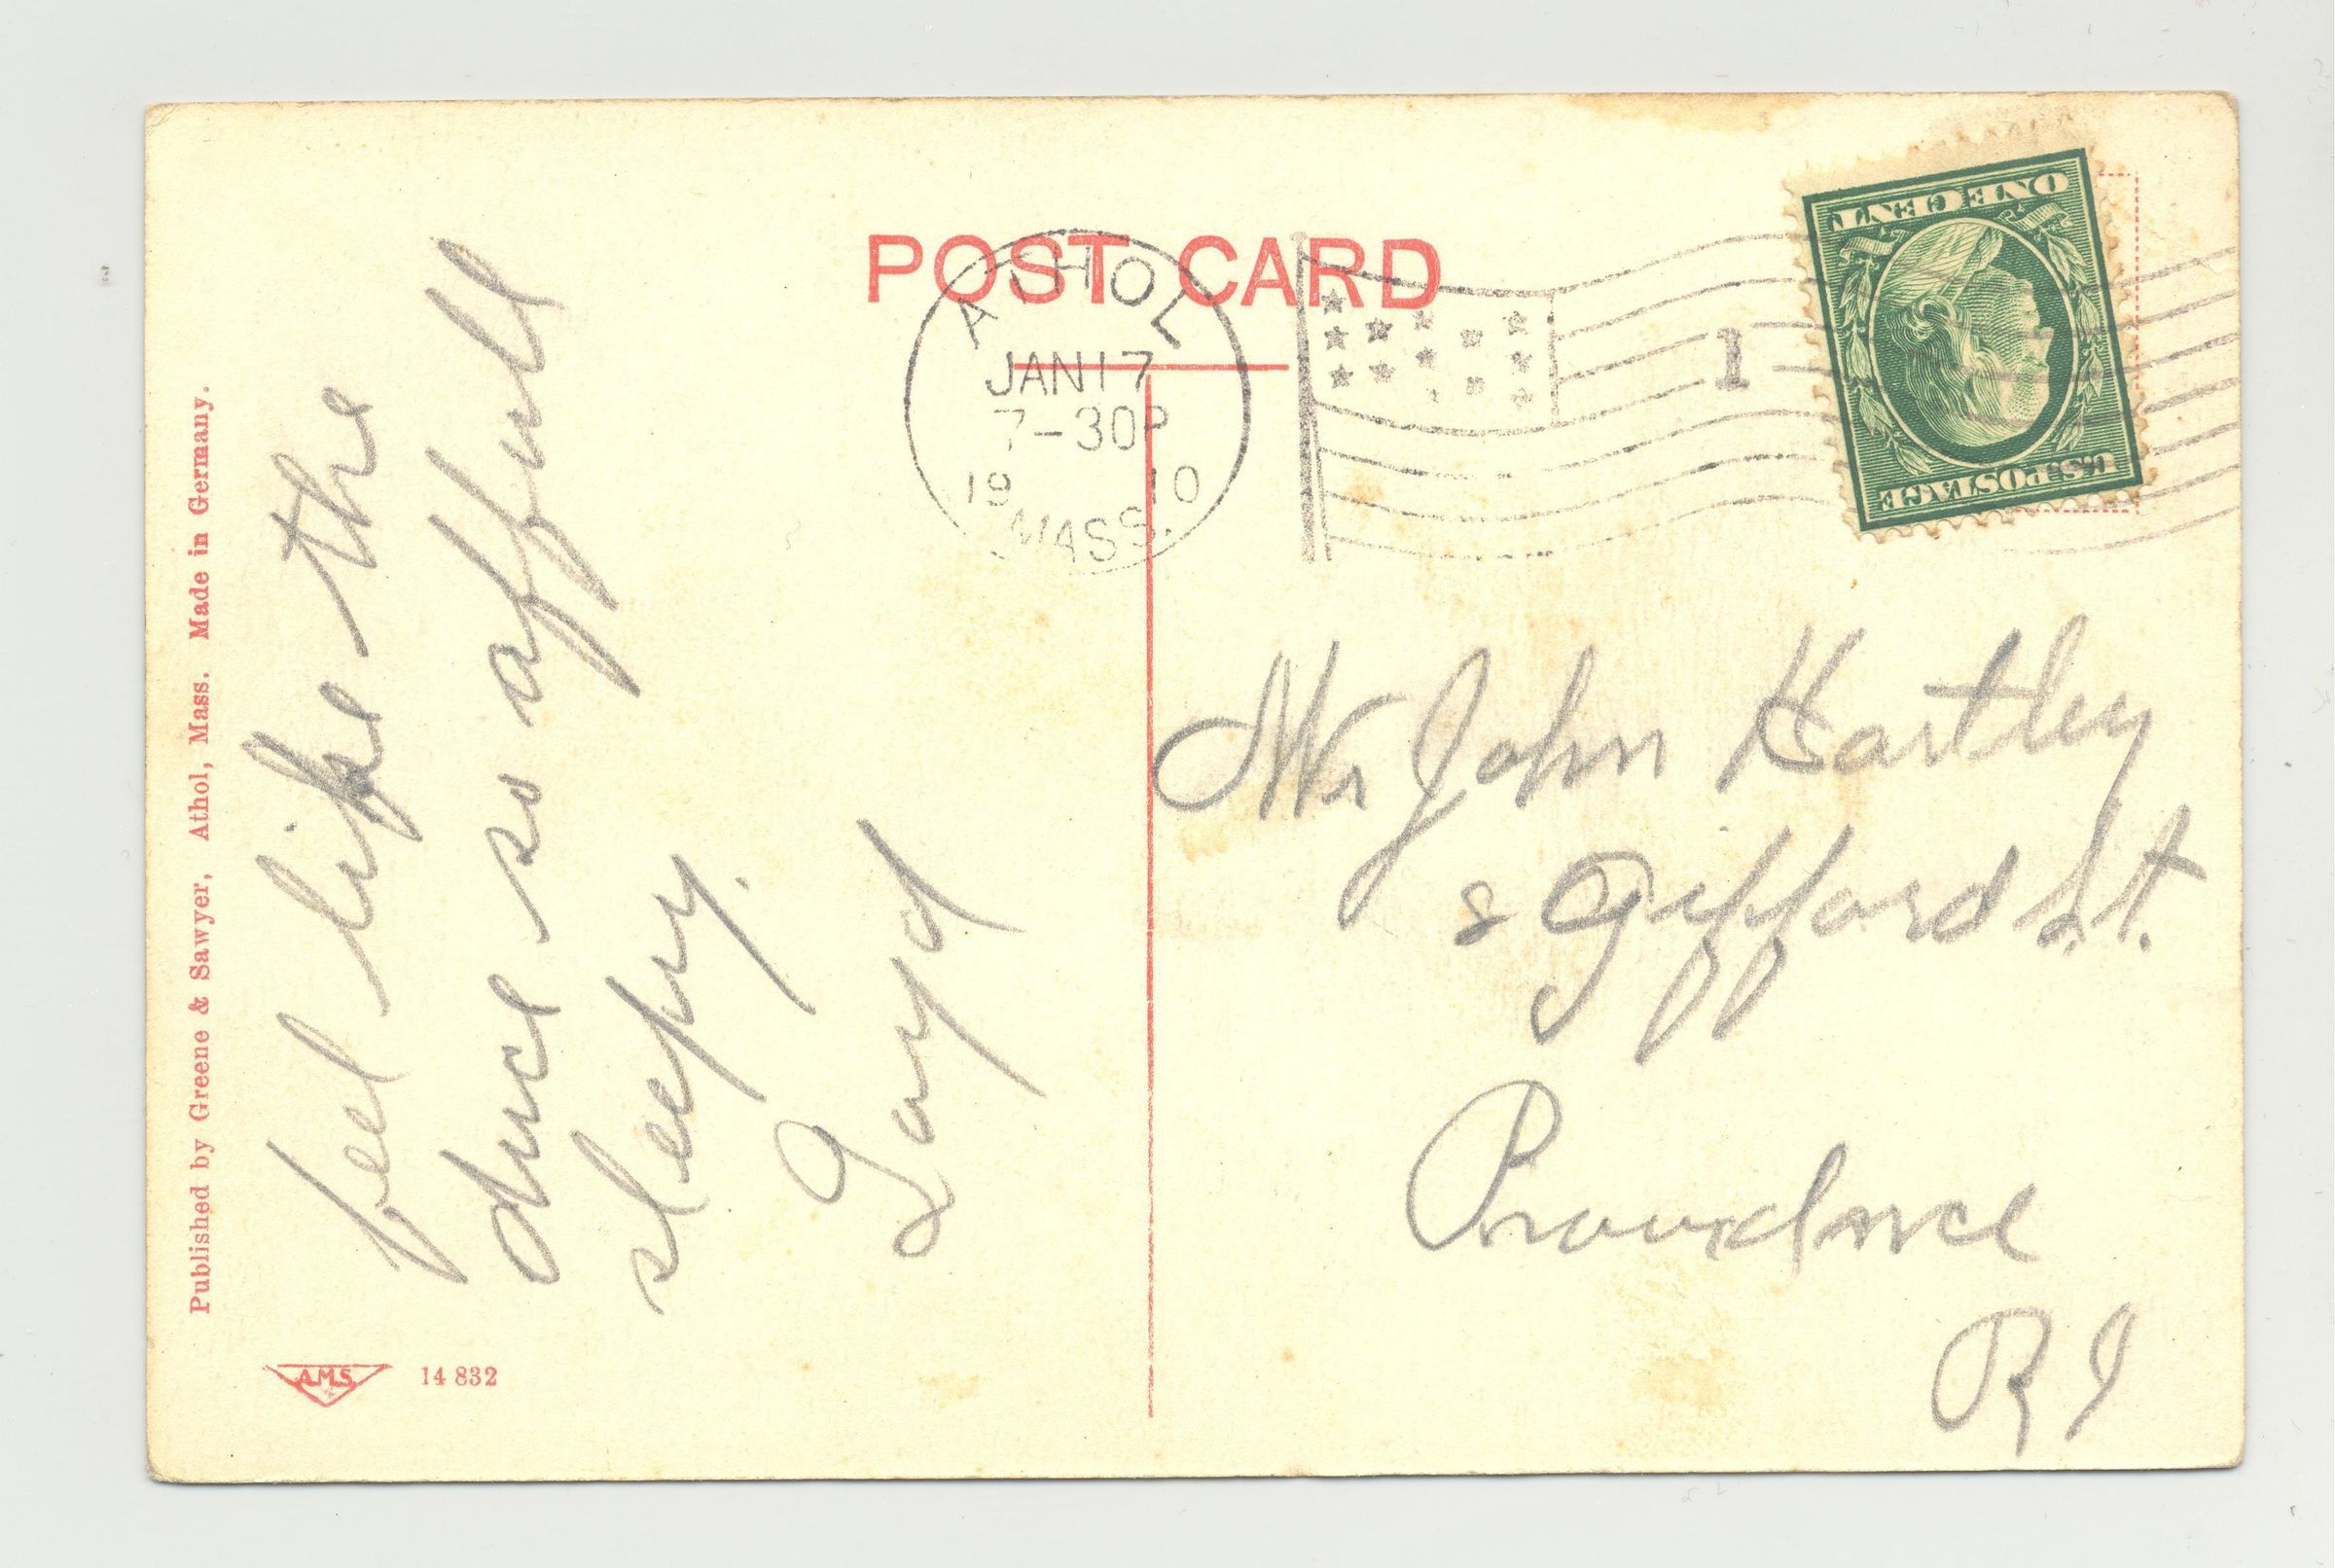 POST CARD
ATHOL
JAN 17
7-30P
19 10
MASS.
1
ONE CENT
U.S. POSTAGE
feel like the
duce so affull
sleepy.
Mr John Hartley
8 Gifford St.
Providence
R I
Published by Greene & Sawyer, Athol, Mass. Made in Germany.
A.M.S.
14 832